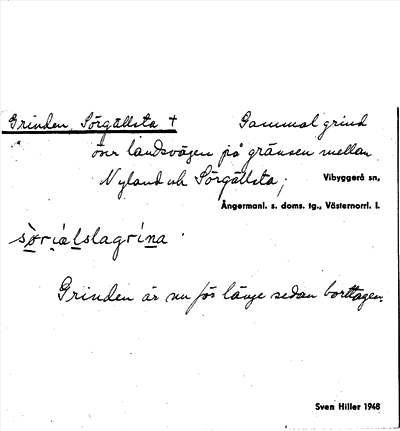 Grinden, Sörgällsta + Gammal grind
över landsvägen på gränsen mellan
Nyland och Sörgällsta; Vibyggerå sn,
Ångermanl. s. doms. tg., Västernorrl. l.
Grinden är nu för länge sedan borttagen.
Sven Hiller 1948